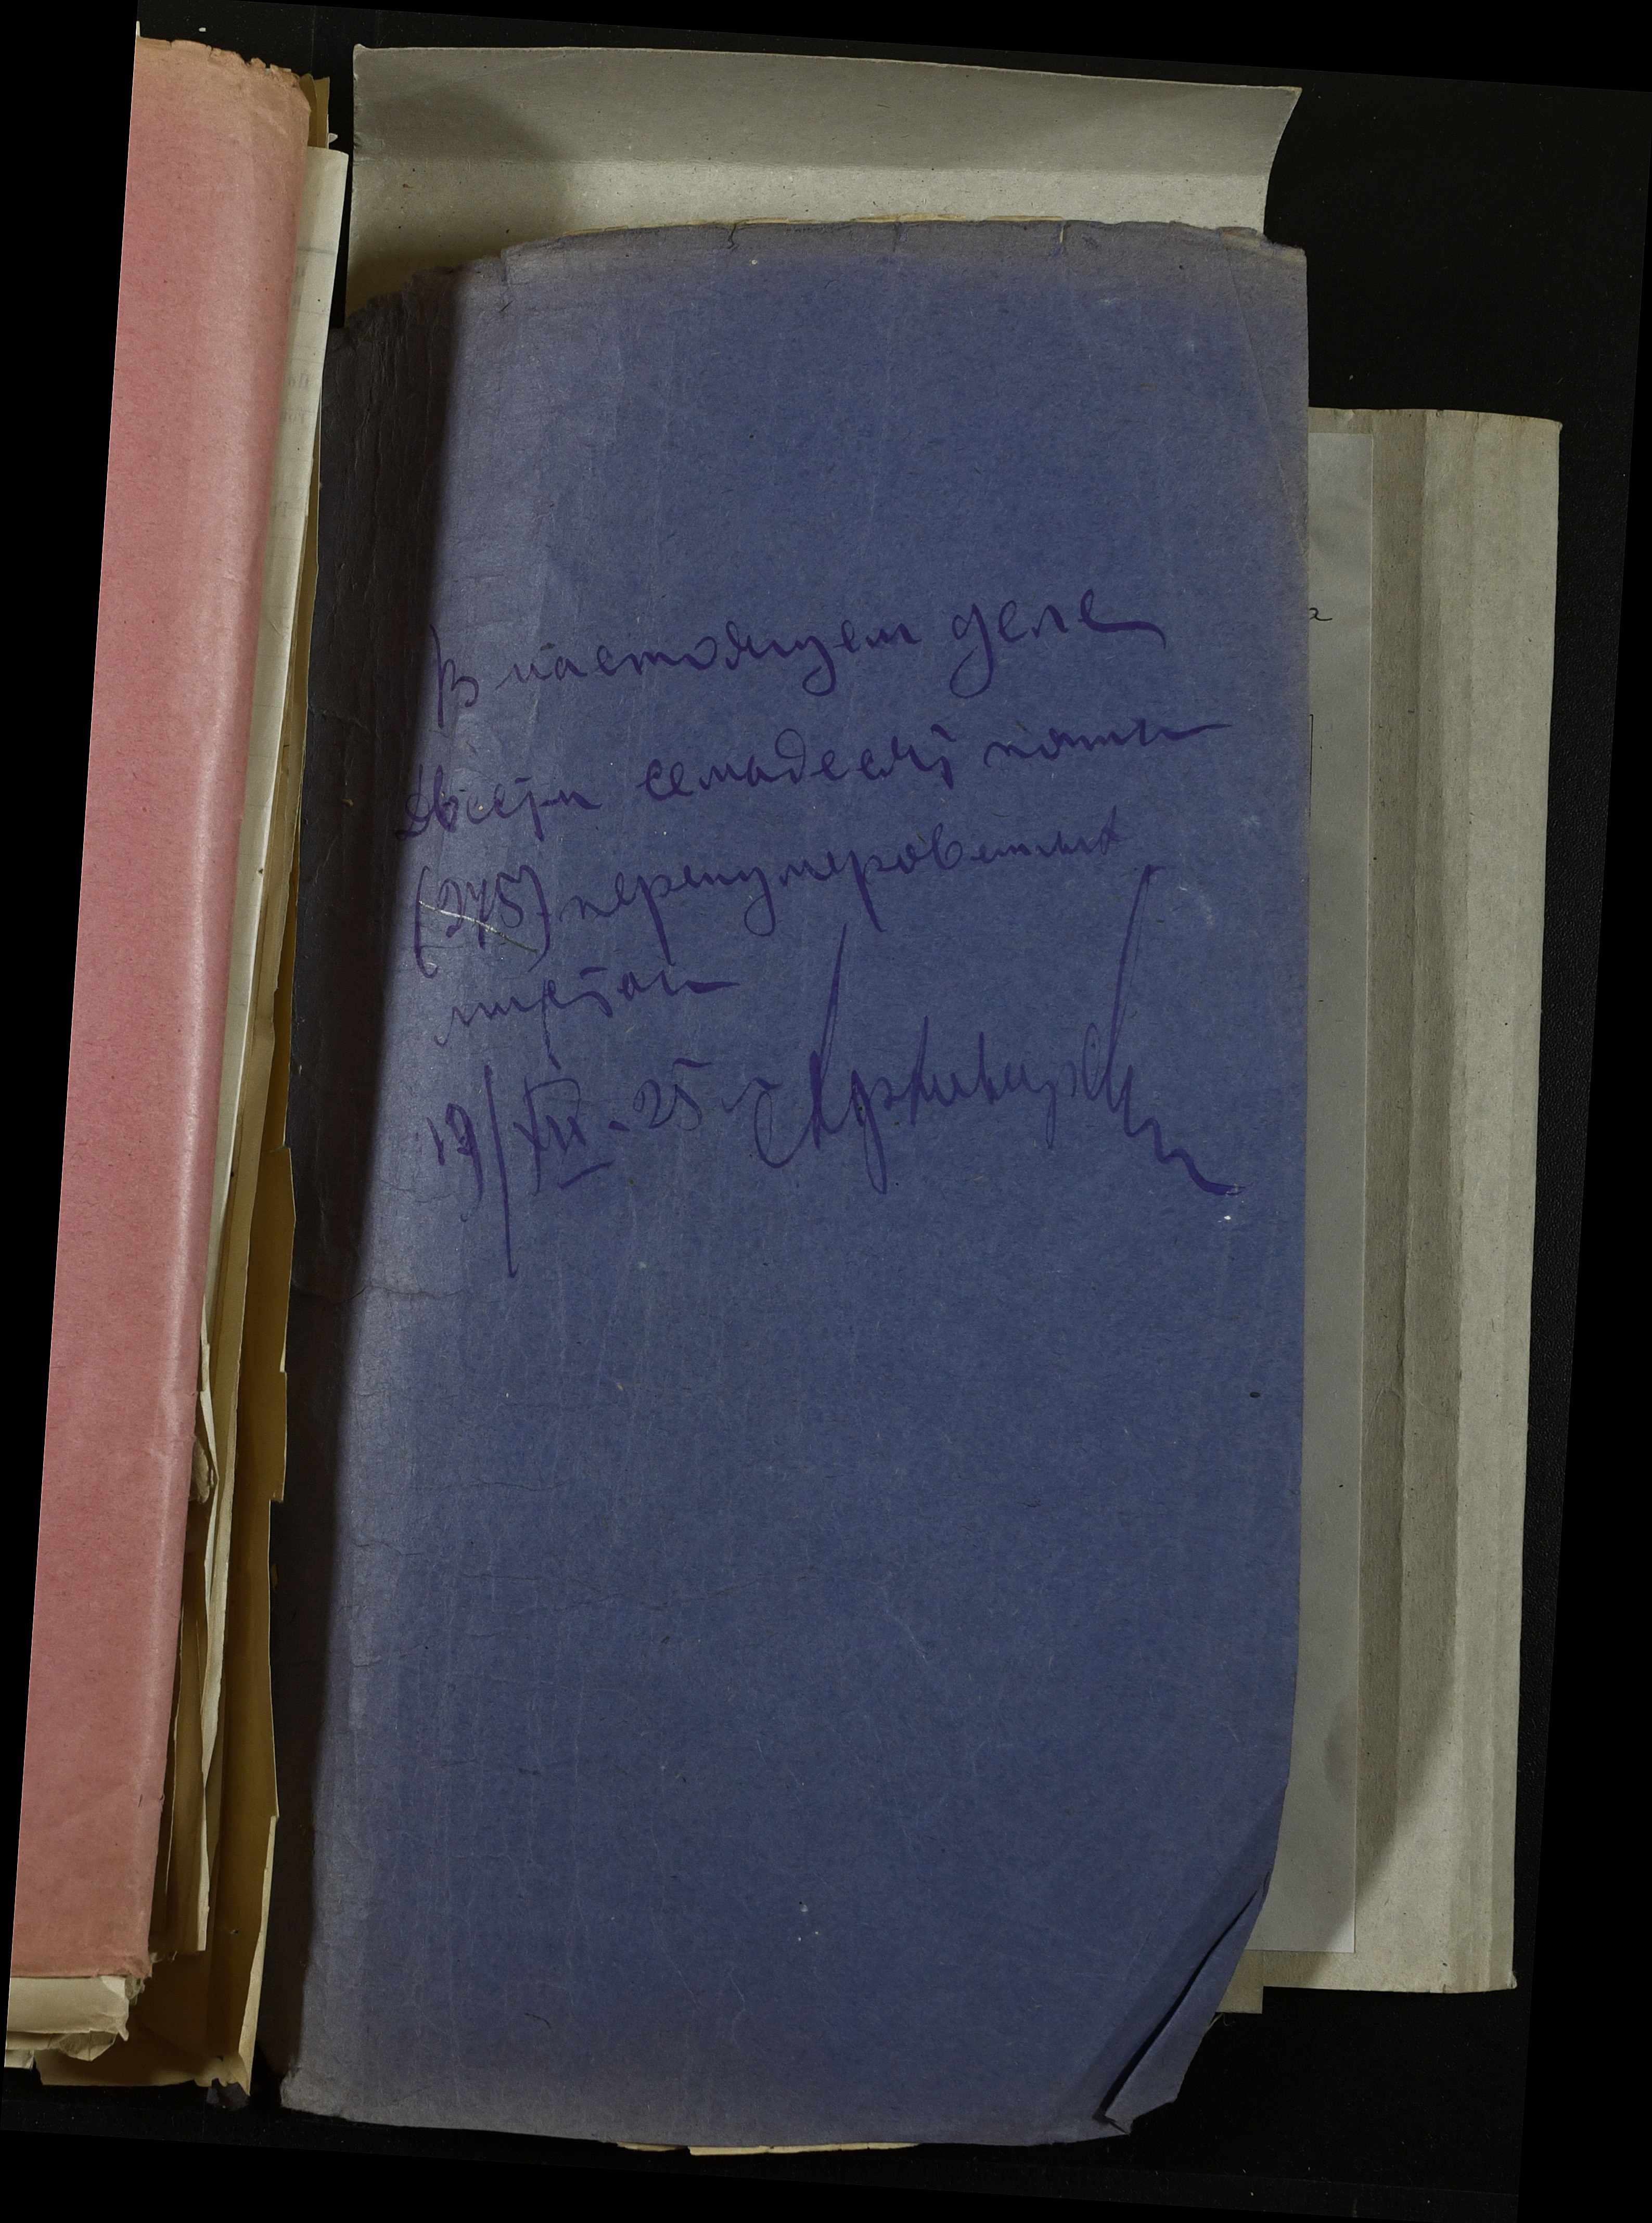 В настоящем деле
Двести семьдесят пять
(275) перенумерованных
листов
17/XII-25 г.